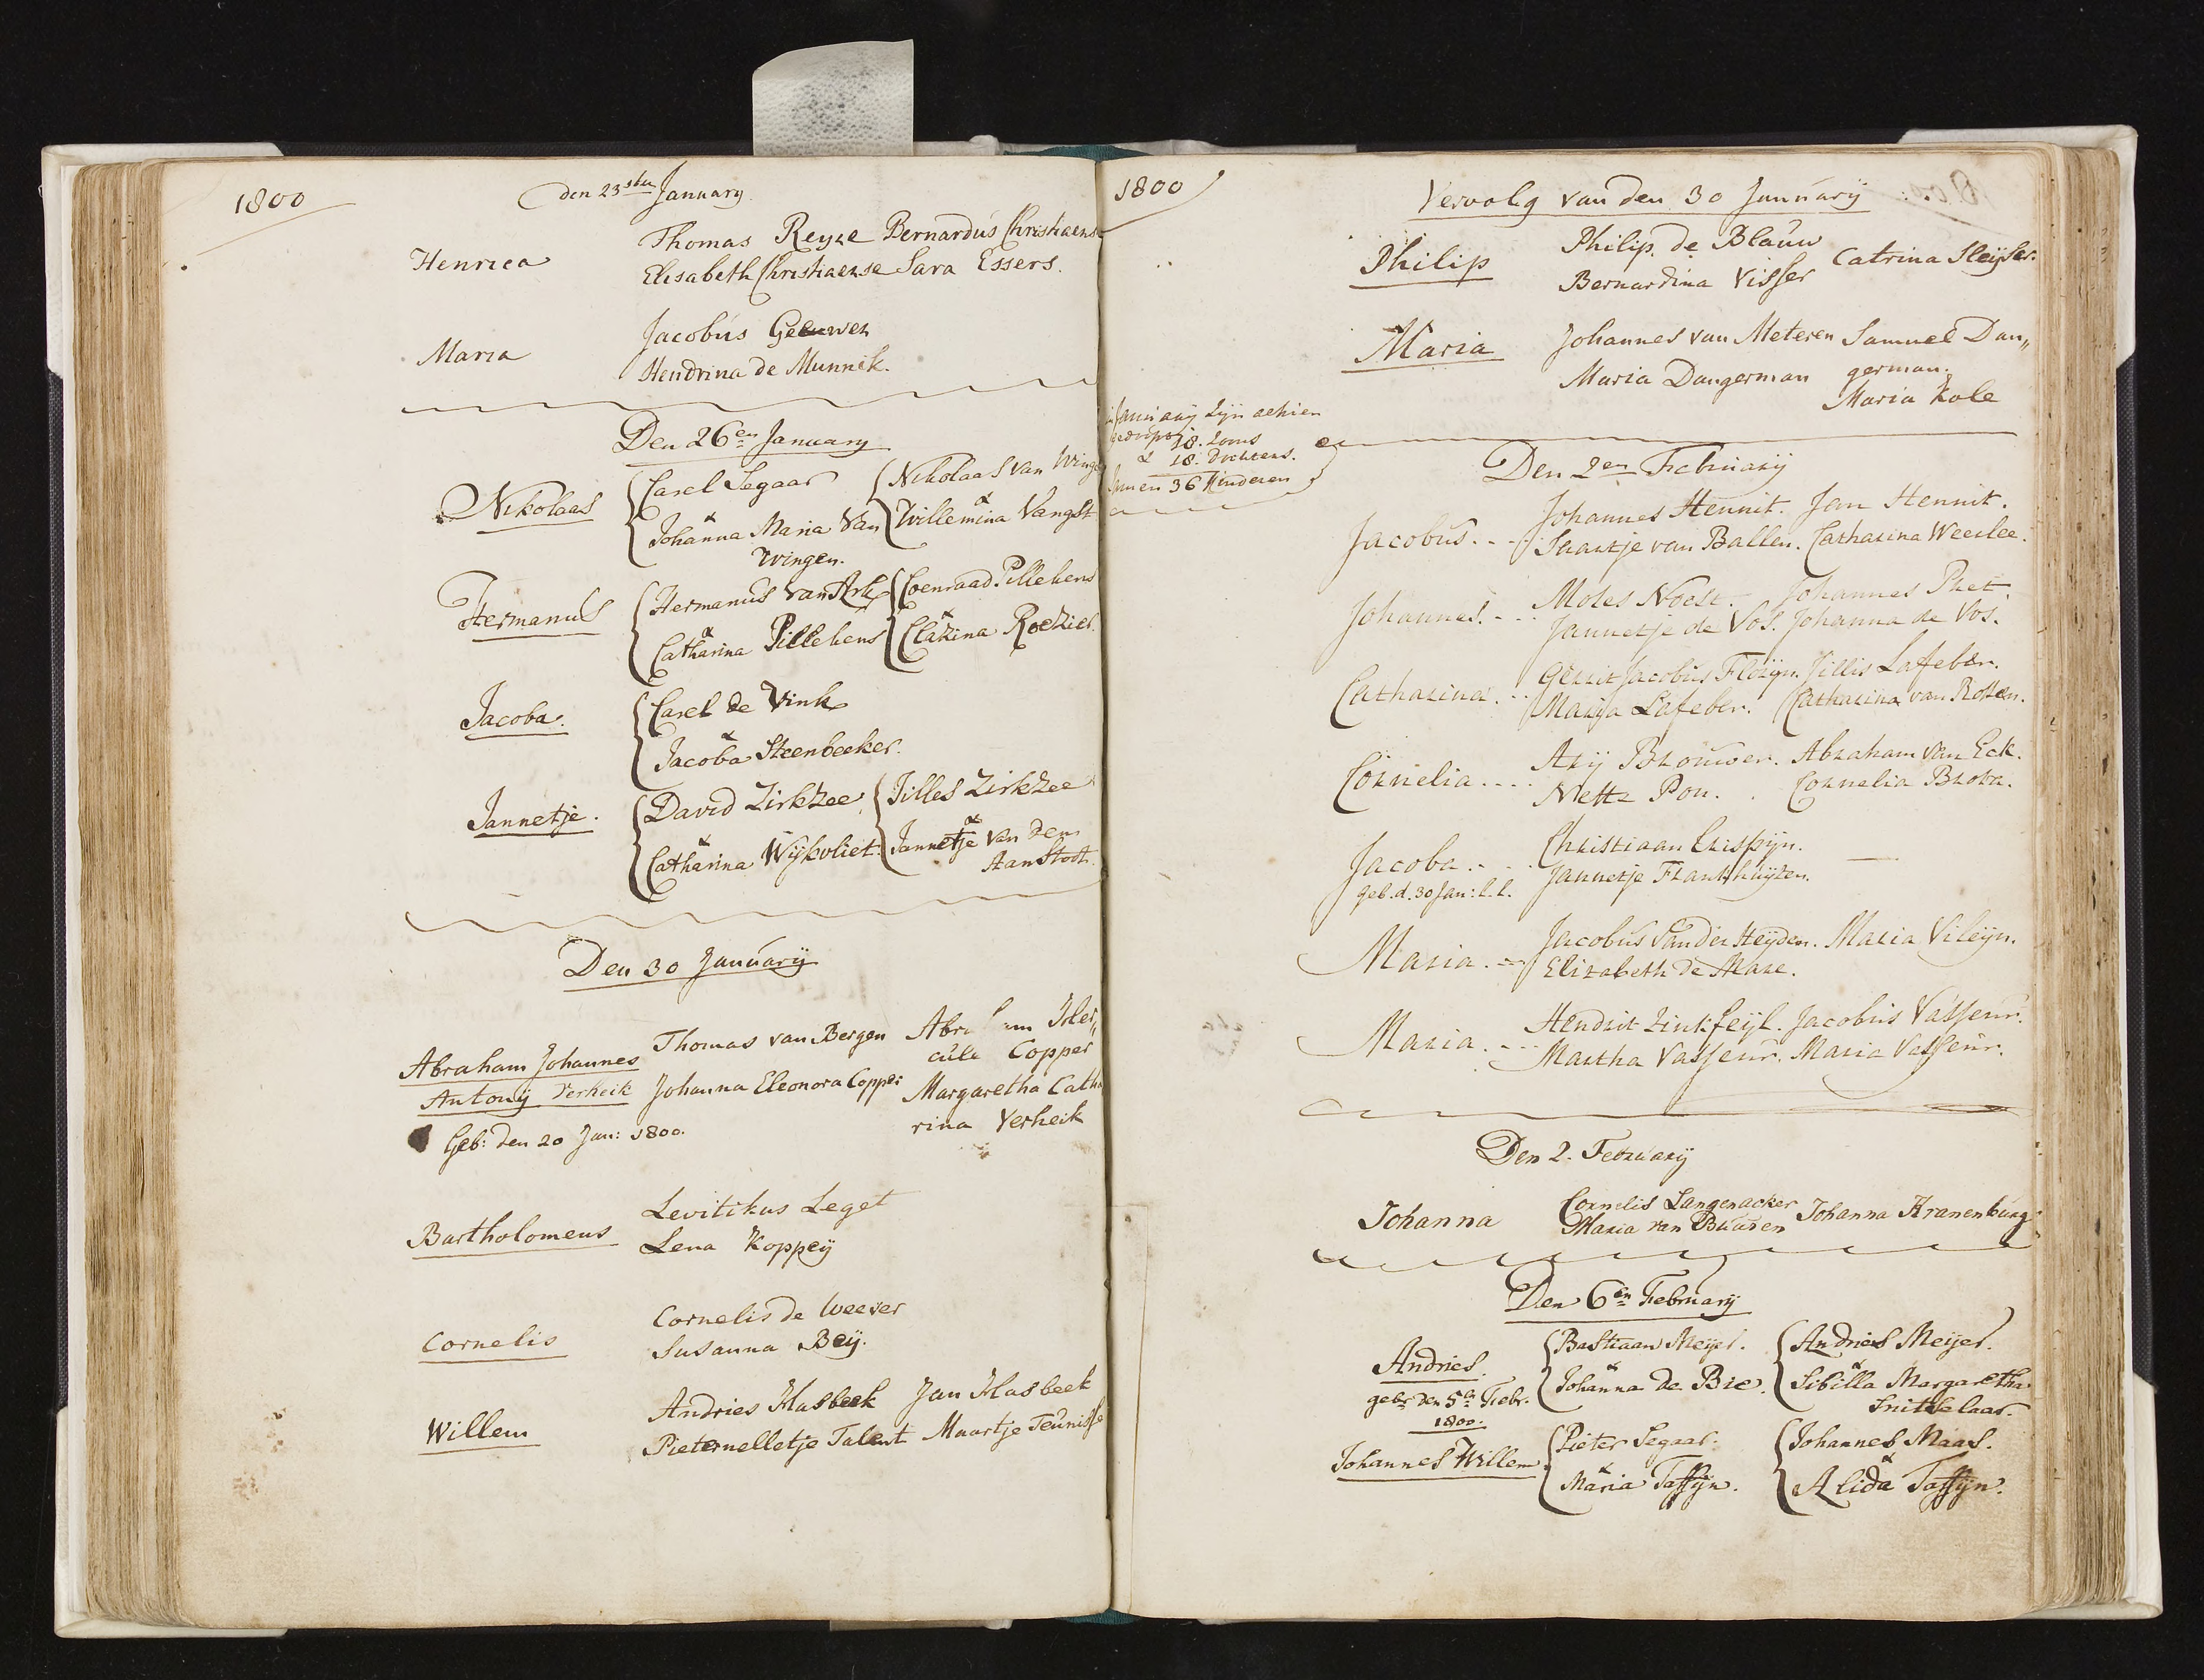 1800
den 23sten January
Henrica
Thomas Reyze Bernardus Christiaense
Elisabeth Christiaense Sara Essers.
Maria
Jacobus Geeuwen
Hendrina de Munnik.
Den 26en January
Nikolaas
Carel Segaar
Nikolaas van Winge
&
Johanna Maria Van
Wingen.
Willemina Vangst
Hermanus
Hermanus van Ark
Coenraad Pillekens
&
Catharina Pillekens
Clazina Roezier.
Jacoba.
Carel de Vink
&
Jacoba Steenbeeker.
Jannetje.
David Zirkzee
Jilles Zirkzee
&
Catharina Wijkvliet.
Jannetje van den
Aanstoot.
Den 30 Januarij
Abraham Johannes
Antonij Verheik
Geb: den 20 Jan: 1800.
Thomas van Bergen
Johanna Eleonora Copper
Abraham Her„
cule Copper
Margaretha Catha
rina Verheik
Bartholomeus
Levitikus Leget
Lena Koppeij
Cornelis
Cornelis de Weever
Susanna Beij.
Willem
Andries Hasbeek Jan Hasbeek
Pieternelletje Talent Maartje Teunisse
1800
Vervolg van den 30 Januarij
Philip
Philip de Blauw
Bernardina Visser
Catrina Sleijser.
Maria
Johannes van Meteren Samuel Dan„
Maria Dangerman german.
Maria Kole
January zijn alhier
gedoopt 18. Zoons
& 18. Dochters.
36 Kinderen
Den 2en Februarij
Jacobus.
Johannes Hennit. Jan Hennit.
Saartje van Ballen. Catharina Weerlee.
Johannes.
Moses Noest. Johannes Phet.
Jannetje de Vos. Johanna de Vos.
Catharina.
Gerrit Jacobus Florijn. Jillis Lafeber.
Marija Lafeber. Catharina van Rossen.
Cornelia.
Arij Brouwer. Abraham van Eck.
Netts Pon. Cornelia Broba.
Jacoba.
geb. d. 30 Jan: l.l.
Christiaan Crispijn.
Jannetje Frankhuijzen.
Maria.
Jacobus van der Heijden. Maria Vileijn.
Elizabeth de Mare.
Maria.
Hendrik Zinkfeijl. Jacobus Vasseur.
Martha Vasseur. Maria Vasseur.
Den 2. Februarij
Johanna
Cornelis Langenacker
Maria van Buuren
Johanna Kranenburg
Den 6en Februarij
Andries.
gebr den 5en Febr.
1800.
Bastiaan Meijer.
&
Johanna de Bie.
Andries Meijer.
&
Sibilla Margaretha
Snitselaar.
Johannes Willem
Pieter Segaar.
&
Maria Taffijn.
Johannes Maas.
&
Alida Taffijn.